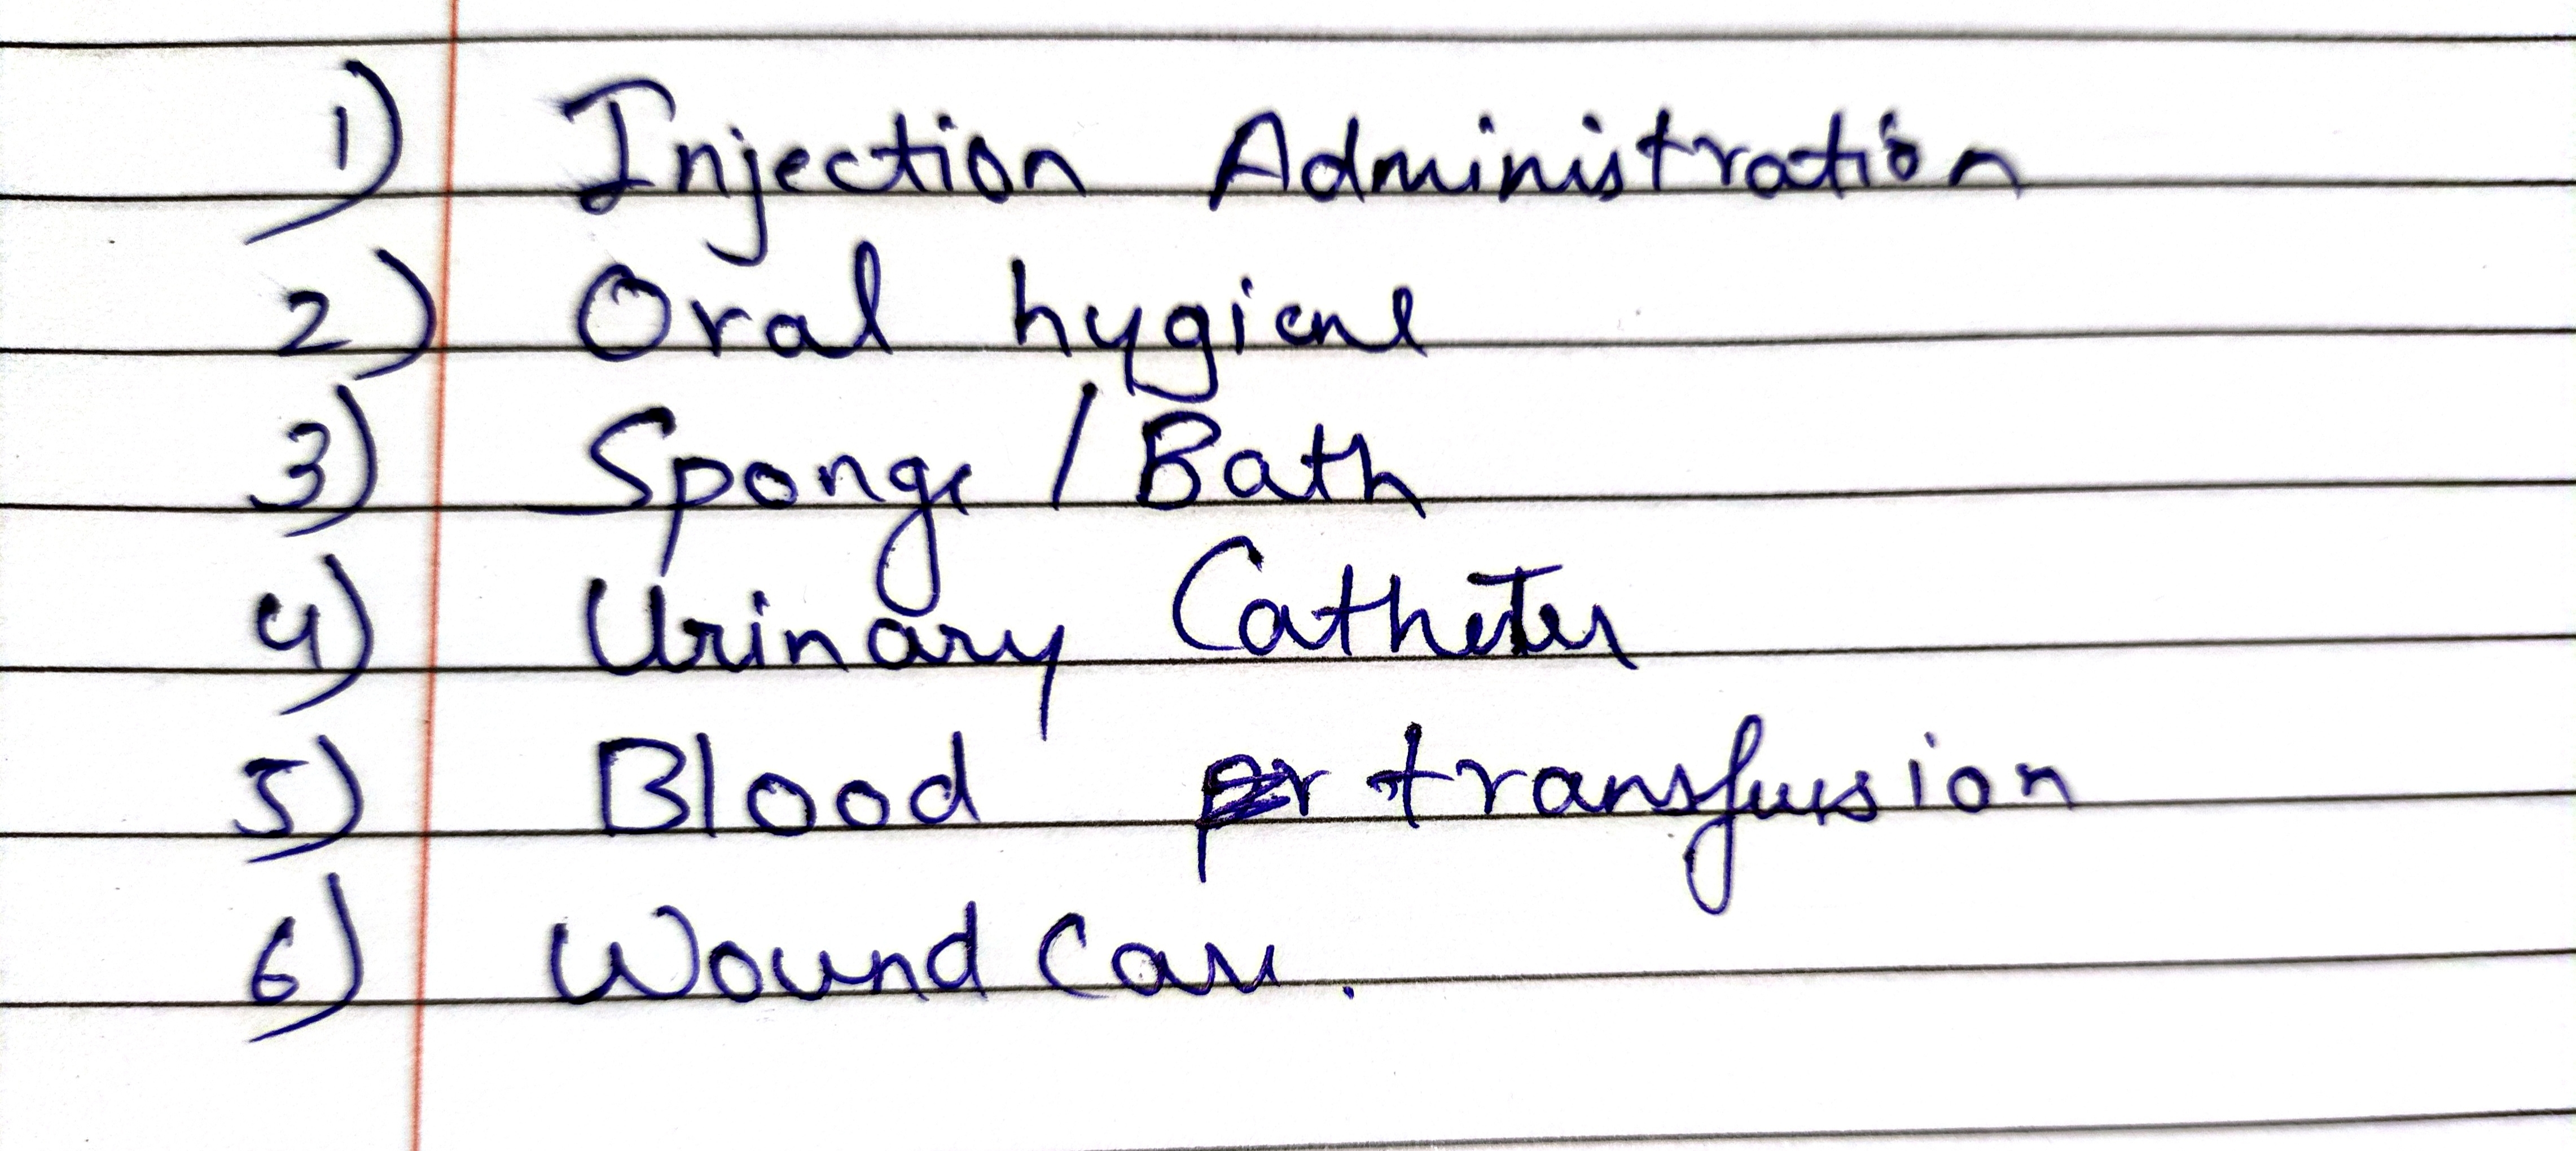 1) Injection Administration
2) Oral hygiene
3) Sponge / Bath
4) Urinary Catheter
5) Blood transfusion
6) Wound Care.